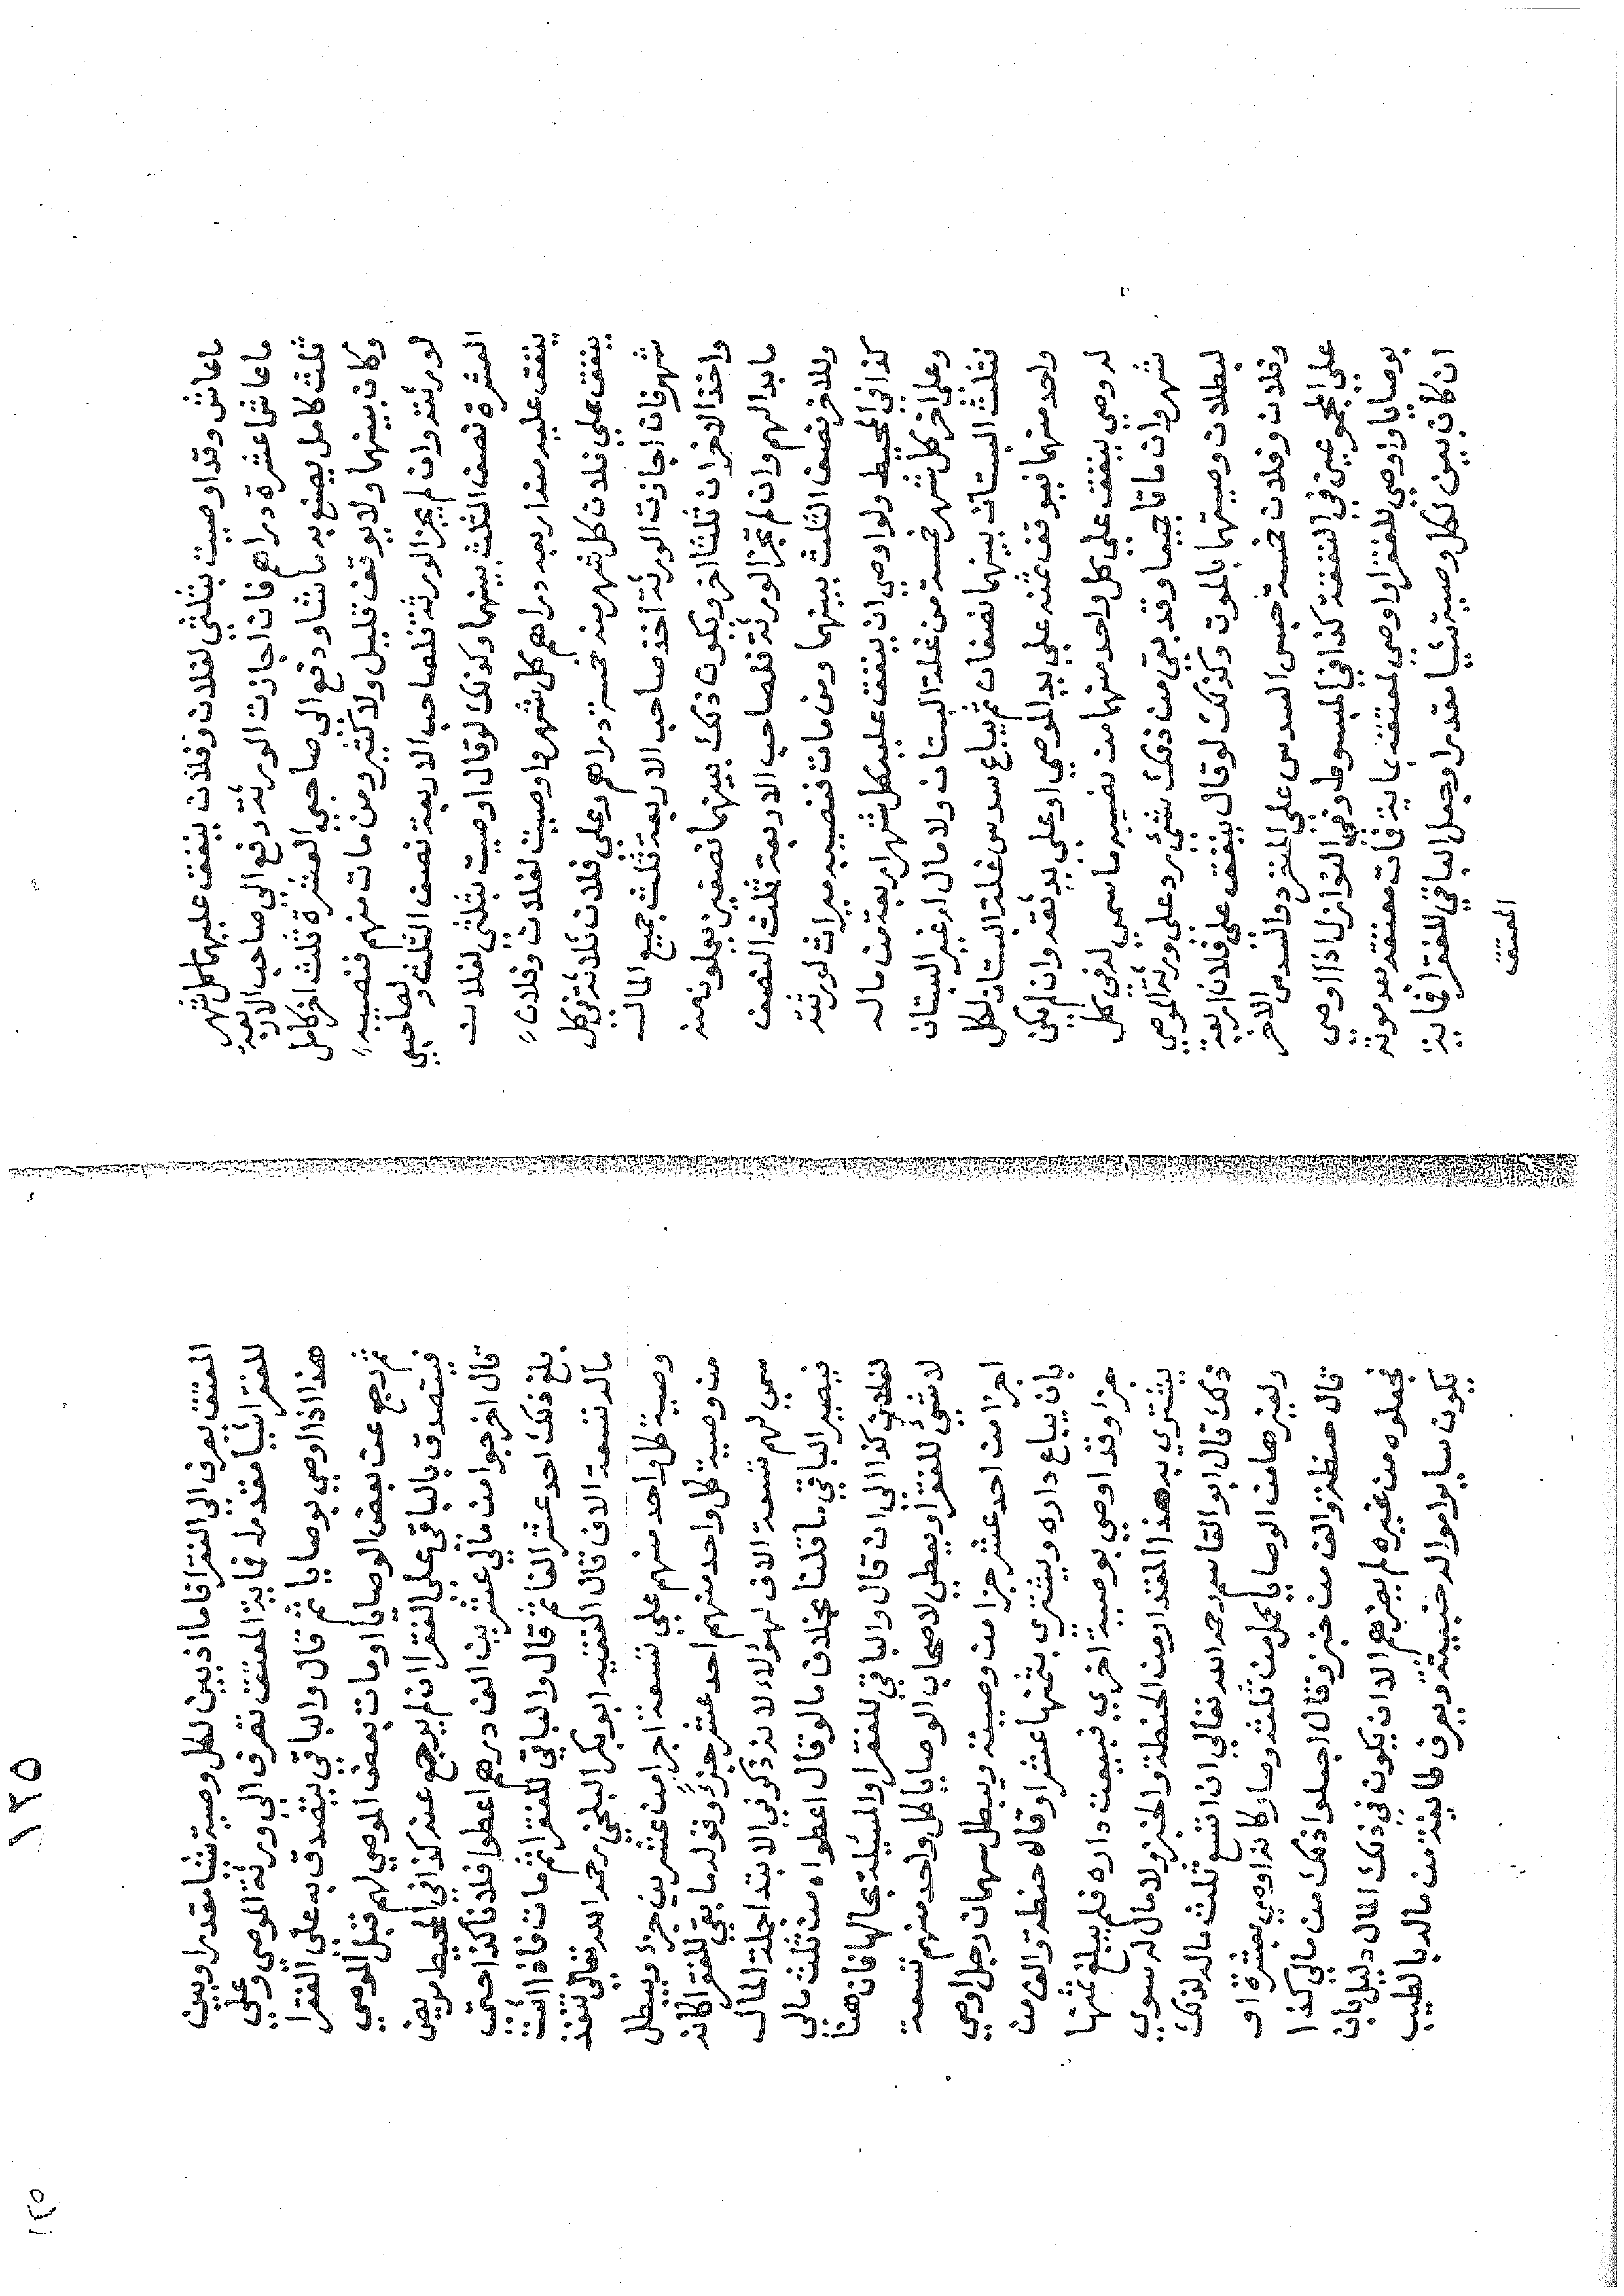 ماعاش وقد اوصيت بثلثي لفلان وفلان ينفق عليهما كل شهر
ماعاش عشرة دراهم فان اجازت الورثة دفع الي صاحب الاربعة
ثلث كامل يصنع به ما شا ودفع الى صاحبي العشرة ثلث اخر كامل
وكان بينهما ولا يوقف قليل ولا كثير ومن مات منهم فنصيبه
لورثته وان لم يجز الورثة فلصاحب الاربعة نصف الثلث ولصاحبي
العشرة نصف الثلث بينهما وكذلك لو قال اوصيت بثلثي لفلان
ينفق عليه منه اربعه دراهم كل شهر واوصيت لفلان وفلان
ينفق علي فلان كل شهر منه خمسة دراهم وعلي فلان ثلاثة في كل
شهر فان اجازت الورثة اخذ صاحب الاربعة ثلث جميع المال
واخذ الاخران ثلثا اخر ويكون ذلك بينهما نصفين يعملون منه
ما بدا لهم وان لم تجز الورثة فلصاحب الاربعة ثلث النصف
وللاخر نصف الثلث بينهما ومن مات فنصيبه ميراث لورثته
كذا في المحيط ولو اوصي ان ينفق عليه كل شهر اربعة من ماله
وعلي اخر كل شهر خمسة من غلة البستان ولا مال له غير البستان
فثلث البستان بينهما نصفان ثم يباع سدس غلة البستان لكل
واحد منهما فيوقف ثمنه علي يد الموصي او علي يد ثقة وان لم يكن
له وصي ينفق علي كل واحد منهما من نصيبه ما سمي له في كل
شهر وان ماتا جميعا وقد بقي من ذلك شئ يرد علي ورثة الموصي
لبطلان وصيتهما بالموت وكذلك لو قال ينفق علي فلان اربعة
وفلان وفلان خمسة حبس السدس علي المنفرد والسدس الاخر
علي المجموعين في النفقة كذا في المبسوط وفي النوازل اذا اوصي
بوصايا واوصي للفقرا واوصي لمعتقه بماية فات معتقه بعد موته
ان كان بين لكل وصية شيا مقدرا وجعل الباقي للفقرا فماية
المعتق
١٢٥
المعتق يعرف الى الفقرا فاما اذ بين لكل وصية شيا مقدرا وبين
للفقرا شيا مقدرا فماية المعتق تعرف الي ورثة الموصي وعلي
هذا اذا اوصي بوصايا ثم قال والباقي يتصدق به علي الفقرا
ثم رجع عن بعض الوصايا او مات بعض الموصي لهم قبل الموصي
فيتصدق بالباقي علي الفقرا ان لم يرجع عنه كذا في المحيط مريض
قال اخرجوا من مالي عشرين الف درهم اعطوا فلانا كذا حتى
بلغ ذلك احد عشر الفا ثم قال والباقي للفقرا ثم مات فاذا الثلث
ماله تسعة الاف قال الفقيه ابو بكر البلخي رحمه الله تعالي تنفذ
وصية كل واحد منهم علي تسعة اجزا من عشرين جزء ويبطل
من وصية كل واحد منهم احد عشر جزء وقوله ما بقي للفقرا كانه
سمي لهم تسعة الاف لهؤلاء لانه ذكر في الابتدا جملة المال
فيصير الباقي ما قلنا بخلاف ما لو قال اعطوا من ثلث مالى
لفلان كذا الى ان قال والباقي للفقرا والمسئلة بحالها فان هنا
لا شئ للفقرا ويعطي لاصحاب الوصايا لكل واحد منهم تسعة
اجزا من احد عشر جزا من وصيته ويبطل سهمان رجل اوصي
بان يباع داره ويشتري بثمنها عشر اوقاله حنطة والف من
جزا وقد اوصي بوصية اخري فبيعت داره فلم يبلغ ثمنها
يشتري به هذا المقدار من الحنطة والخبز ولا مال له سوي
ذلك قال ابو القاسم رحمه الله تعالي ان اتسع ثلث ماله لذلك
ولغيرها من الوصايا يكمل من ثلثه وصار كانه اوصي بعشرة او
قال حنطة والف من خبز وقال اجعلوا ذلك من مالي كذا
فجعلوه من غيره لم يضرهم الا ان يكون في ذلك المال دليل بان
يكون ساير امواله خبيثة ويعرف طايفة من ماله بالطيب
١٢٥